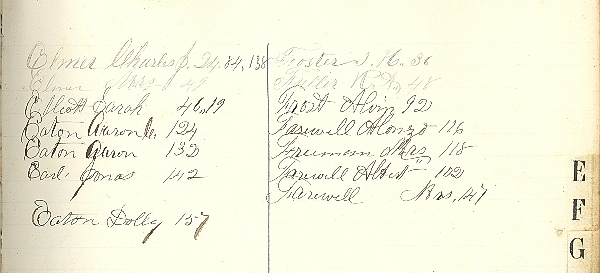 Elmer Charles J. 24, 84, 138
Elmer Mrs 49
Elliott Sarah 46, 19
Eaton Aaron Jr. 124
Eaton Aaron 132
Earl Jonas 142
Eaton Dolly 157
Foster J. H. 36
Fuller 48
Frost Alvin 92
Farewell Alonzo 116
Freeman Mrs 118
Farewell Albert " 102
Farewell Mrs, 147
E
F
G